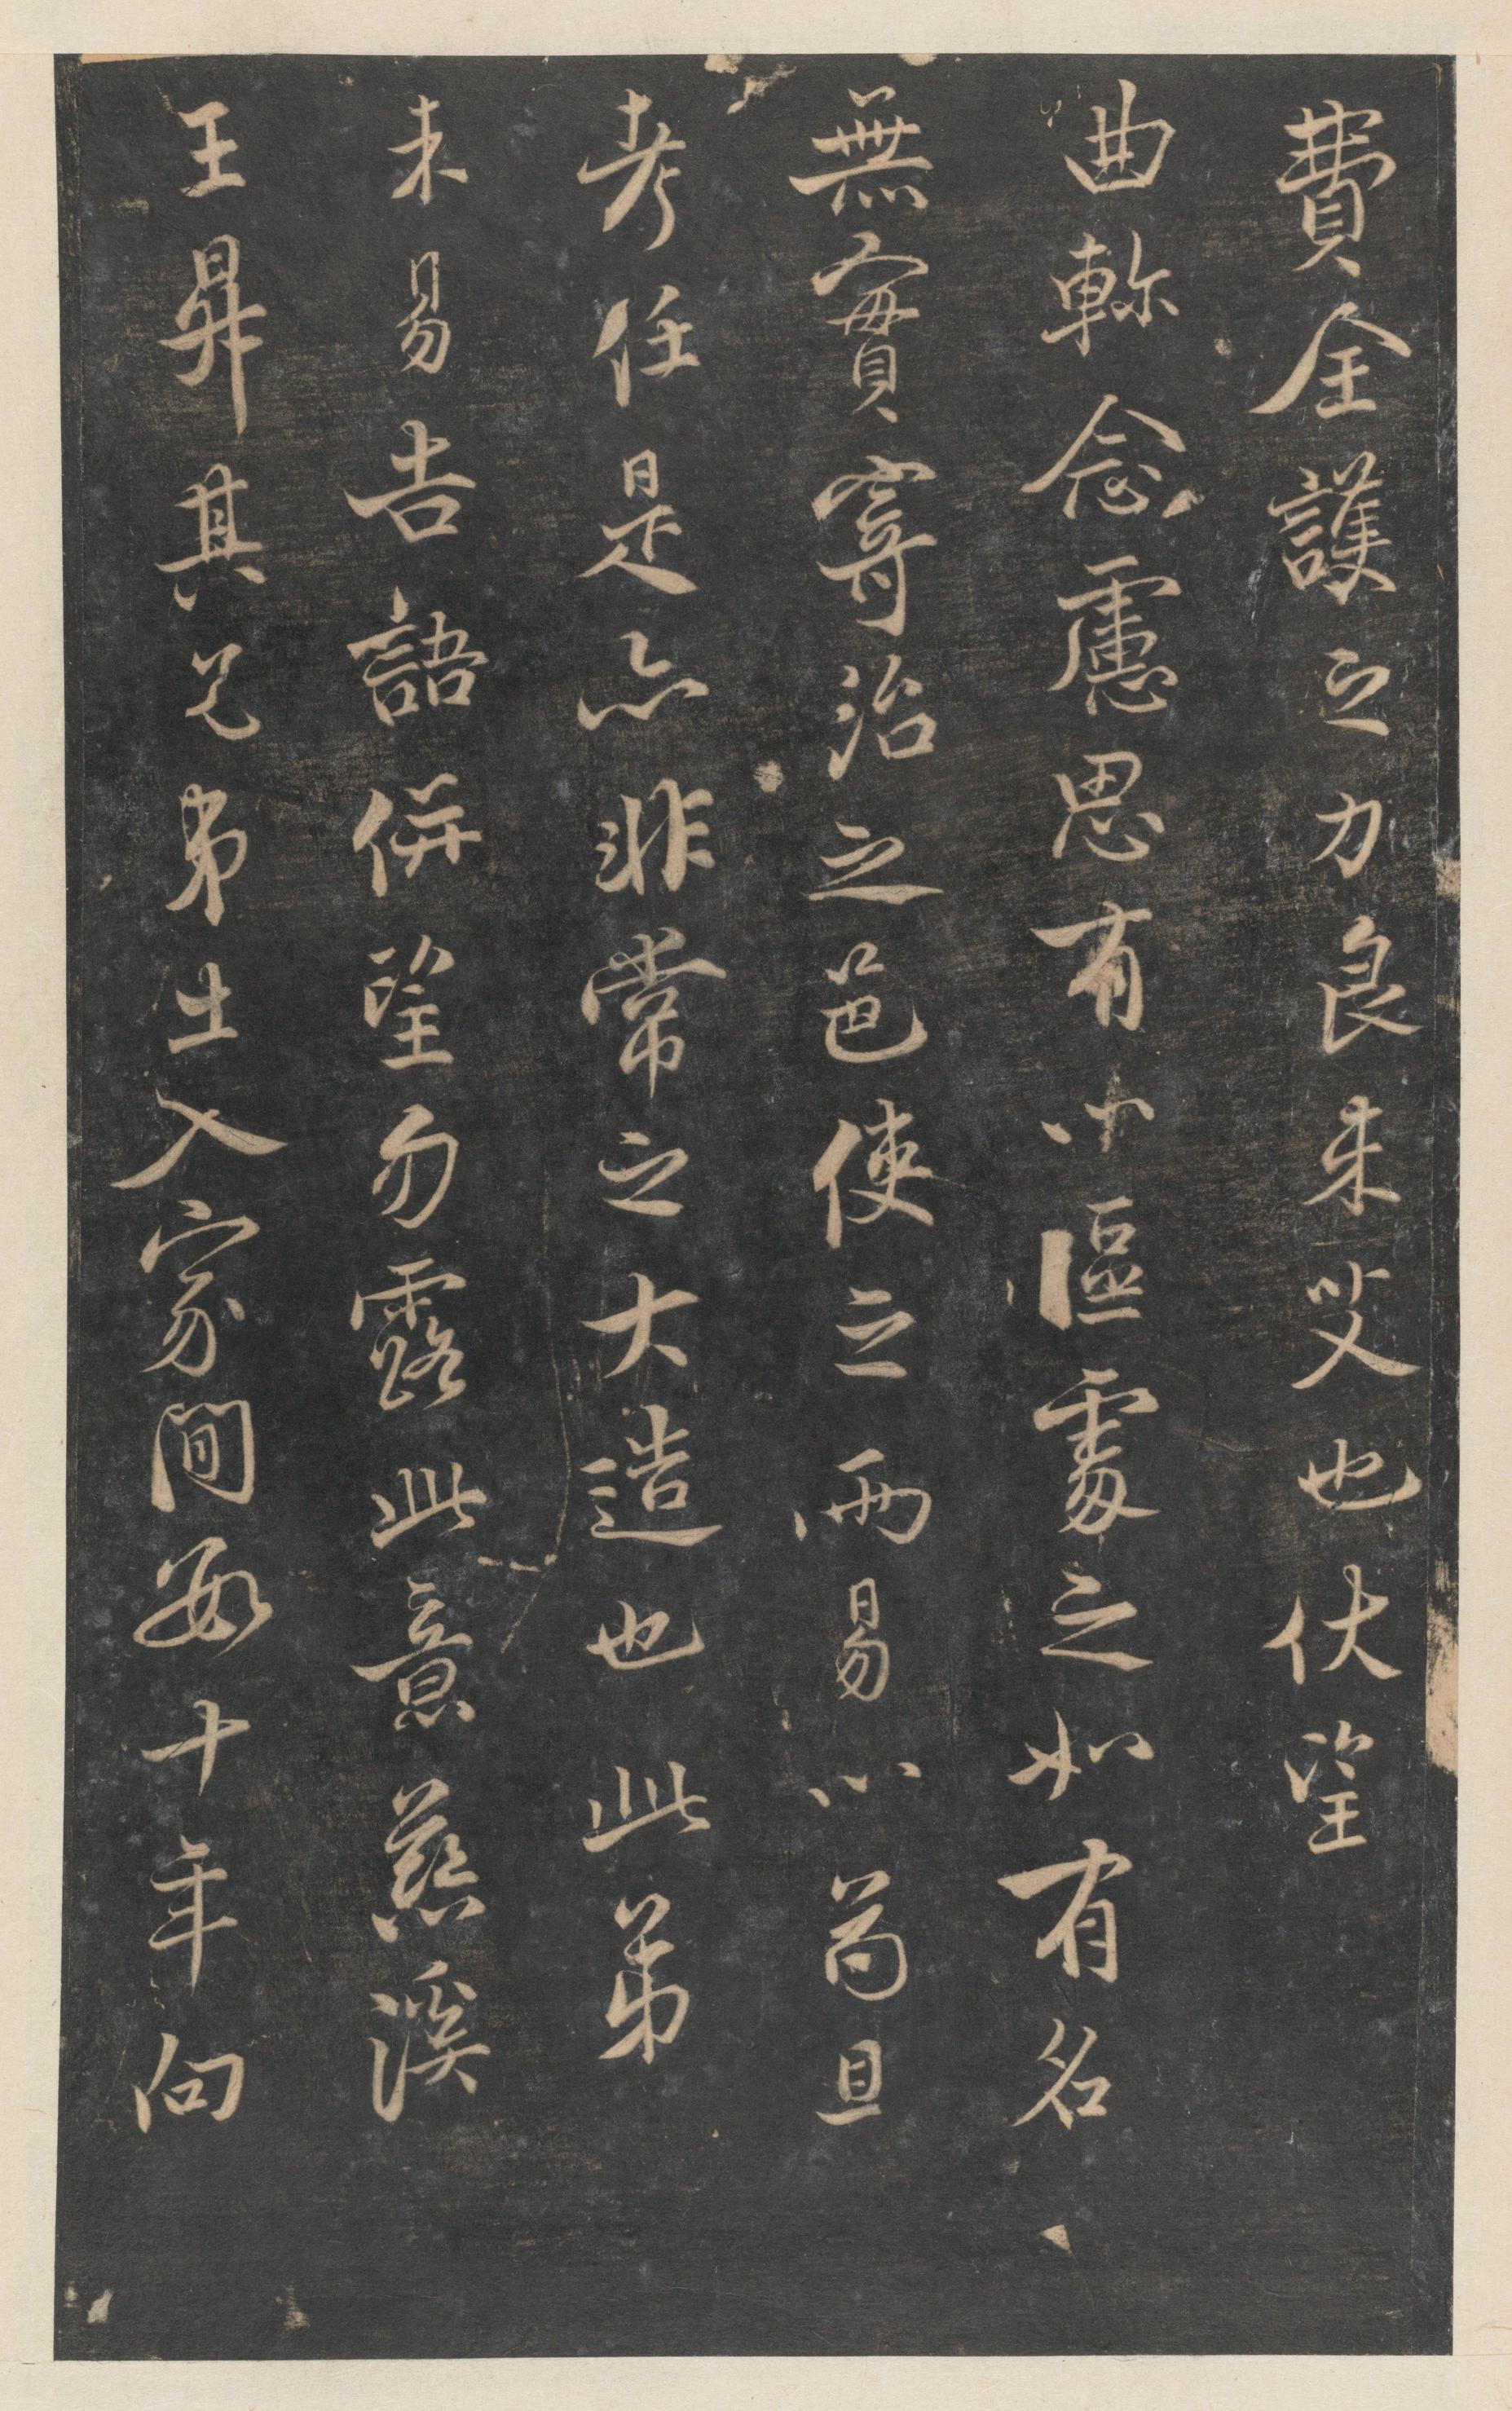 費全護之力良未艾也伏望
曲軫念慮思有以區處之如有名
無實寄治之邑使之兩易以苟且
考任是亦非常之大造也此弟
未易告語併望勿露此意慈溪
王昇其兄弟出入家間每十年向